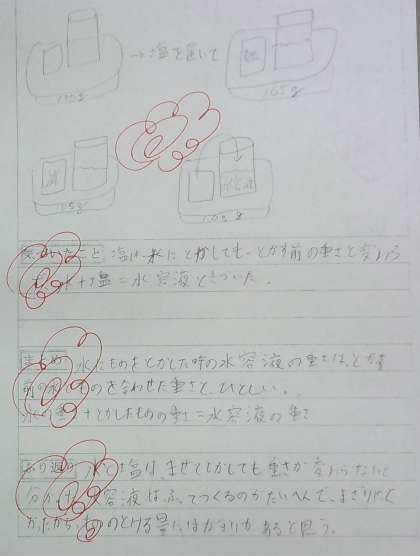 →塩を置いて
105g
105g
塩
105g
水容液
105g
気づいたこと 塩は、水にとかしても、とかす前の重さと変わら
水+塩=水容液ときづいた。
まとめ 水にものをとかした時の水容液の重さは、とかす
前の水とものを合わせた重さと、ひとしい。
水の重さ+とかしたものの重さ=水容液の重さ
ふり返り 水と塩は、まぜてとかしても重さが変わらないと
分かった。水容液は、ふってつくるのがたいへんで、まざりにく
かったから、もののとける量にはかぎりがあると思う。